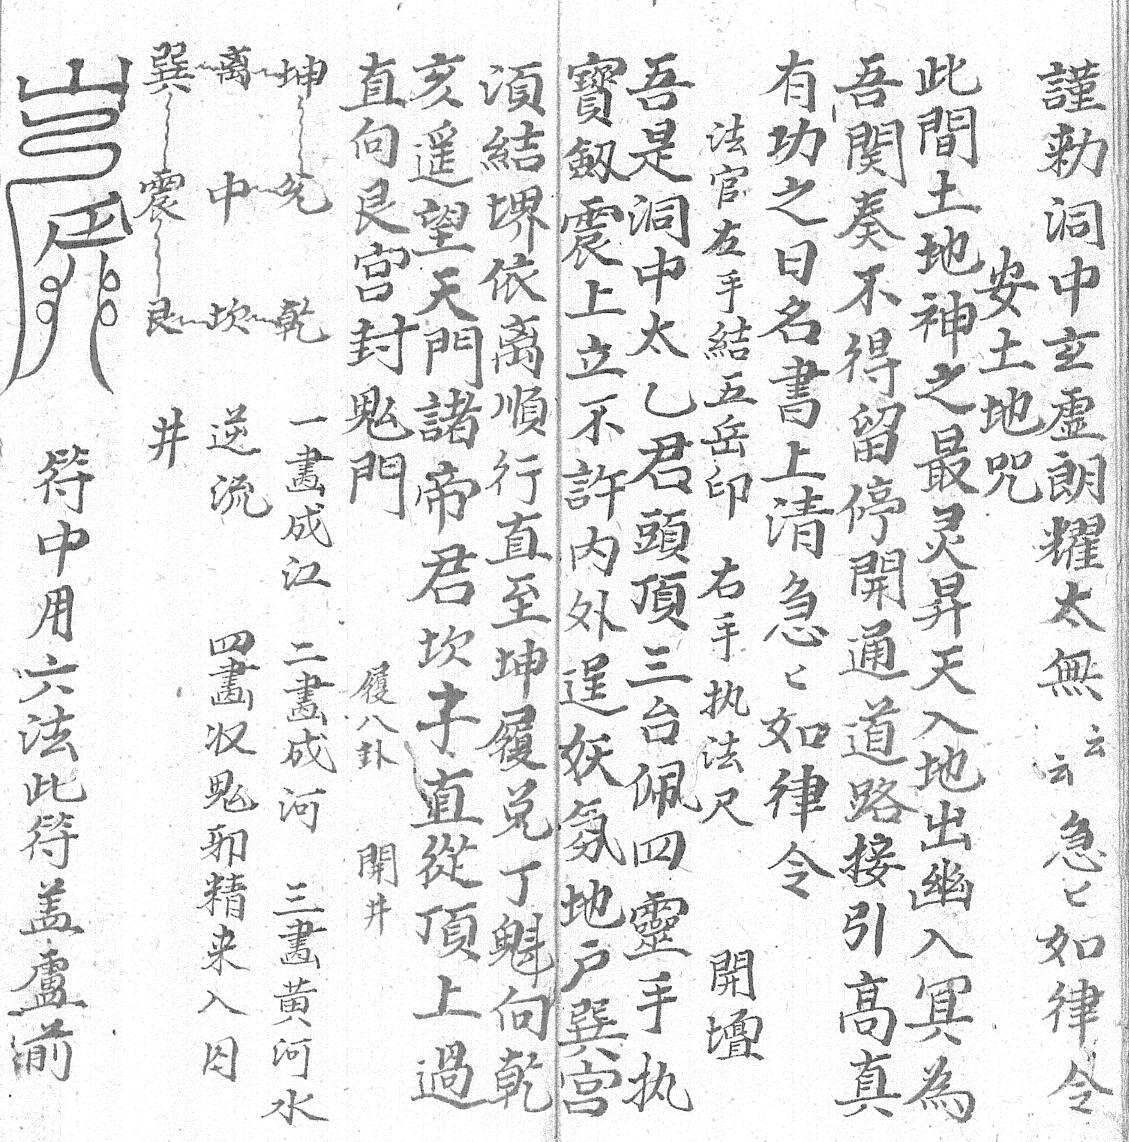 謹勅洞中玄虛朗耀太無云云急〻如律令
安土地咒
此間土地神之最灵昇天入地出幽入冥為
吾関奏不得留停開通道路接引高真
有功之日名書上清急〻如律令
法官左手結五岳印 右手执法尺 開壇
吾是洞中太乙君頭頂三台佩四靈手执
寶劔震上立不許內外逞妖氛地戶巽宮
須結堺依离順行直至坤履兌丁魁向乾
亥遥望天門諸帝君坎子直從頂上過
直向艮宮封鬼門 履八卦 開井
坤 兌 乾 一畫成江 二畫成河 三畫黄河水
离 中 坎 逆流 四畫收鬼邪精来入囚
巽 震 艮 井
符中用六法此符盖盧前